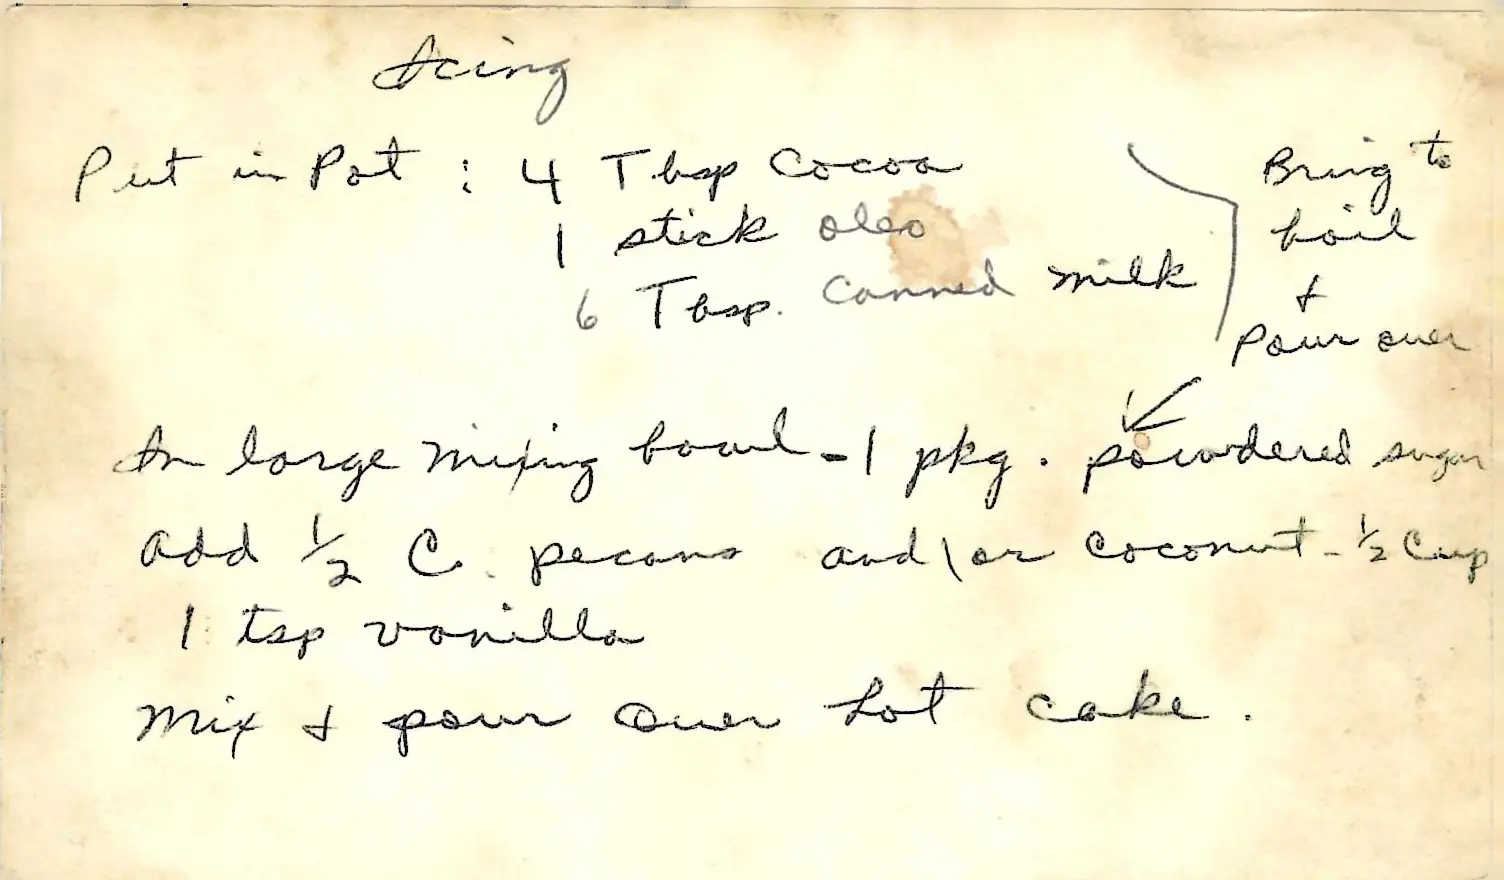 Icing
Put in Pot : 4 Tbsp Cocoa
1 stick oleo
6 Tbsp. Canned Milk
Bring to
boil
&
pour over
In large mixing bowl - 1 pkg. powdered sugar
add 1/2 C. pecans and\or coconut - 1/2 Cup
1 tsp vanilla
Mix & pour over hot cake.